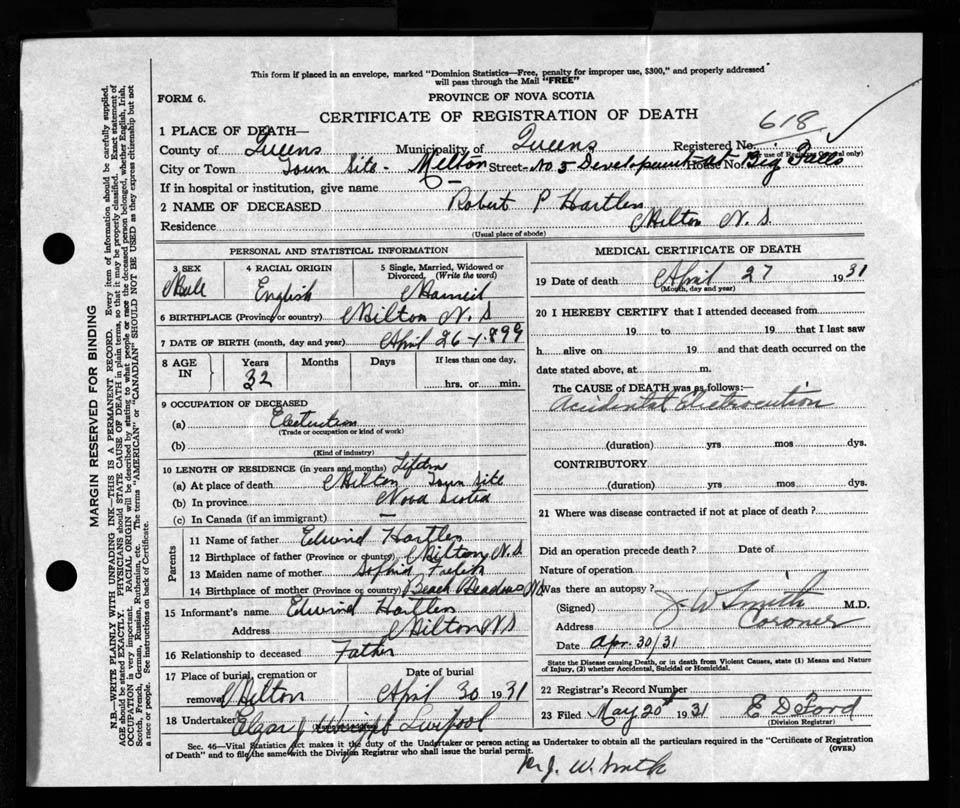 This form if placed in an envelope, marked "Dominion Statistics—Free, penalty for improper use, $300," and properly addressed
will pass through the Mail "FREE"
FORM 6.
PROVINCE OF NOVA SCOTIA
CERTIFICATE OF REGISTRATION OF DEATH
618
1 PLACE OF DEATH—
County of Queens Municipality of Queens Registered No.
City or Town Town Site - Milton Street No 5 Development at Big Falls House No.
If in hospital or institution, give name —
2 NAME OF DECEASED Robert P Hartlen
Residence Milton N.S.
(Usual place of abode)
PERSONAL AND STATISTICAL INFORMATION
3 SEX Male
4 RACIAL ORIGIN English
5 Single, Married, Widowed or Divorced, (Write the word) Married
6 BIRTHPLACE (Province or country) Milton N.S
7 DATE OF BIRTH (month, day and year) April 26-1899
8 AGE IN Years 32 Months Days If less than one day, hrs. or min.
9 OCCUPATION OF DECEASED
(a) Electrician
(Trade or occupation or kind of work)
(b)
(Kind of industry)
10 LENGTH OF RESIDENCE (in years and months) Lifetime
(a) At place of death Milton Town Site
(b) In province Nova Scotia
(c) In Canada (if an immigrant) —
Parents
11 Name of father Edwind Hartlen
12 Birthplace of father (Province or country) Milton, N.S.
13 Maiden name of mother Sophia
14 Birthplace of mother (Province or country) Beach Meadows NS
15 Informant's name Edwind Hartlen
Address Milton NS
16 Relationship to deceased Father
17 Place of burial, cremation or removal Milton
Date of burial April 30 1931
18 Undertaker Elgar J Liverpool
MEDICAL CERTIFICATE OF DEATH
19 Date of death April 27 1931
(Month, day and year)
20 I HEREBY CERTIFY that I attended deceased from
19 to 19 that I last saw
h alive on 19 and that death occurred on the
date stated above, at m.
The CAUSE of DEATH was as follows:—
Accidental Electrocution
(duration) yrs mos dys.
CONTRIBUTORY
(duration) yrs. mos. dys.
21 Where was disease contracted if not at place of death?
Did an operation precede death? Date of
Nature of operation
Was there an autopsy?
(Signed) J. W Smith M.D.
Address Coroner
Date Apr. 30/31
State the Disease causing Death, or in death from Violent Causes, state (1) Means and Nature
of Injury, (2) whether Accidental, Suicidal or Homicidal.
22 Registrar's Record Number
23 Filed May 20th 1931 E DeFord
(Division Registrar)
Sec. 46—Vital Statistics Act makes it the duty of the Undertaker or person acting as Undertaker to obtain all the particulars required in the "Certificate of Registration
of Death" and to file the same with the Division Registrar who shall issue the burial permit.
(OVER)
J. W. Smith
MARGIN RESERVED FOR BINDING
N.B.—WRITE PLAINLY WITH UNFADING INK—THIS IS A PERMANENT RECORD. Every item of information should be carefully supplied.
AGE should be stated EXACTLY. PHYSICIANS should STATE CAUSE OF DEATH in plain terms, so that it may be properly classified. Exact statement of
OCCUPATION is very important. RACIAL ORIGIN will be described by stating to what people or race the deceased person belonged, whether English, Irish,
Scotch, French, German, Russian, Ruthenian, etc. The terms "AMERICAN" or "CANADIAN" SHOULD NOT BE USED as they express citizenship but not
a race or people. See instructions on back of Certificate.